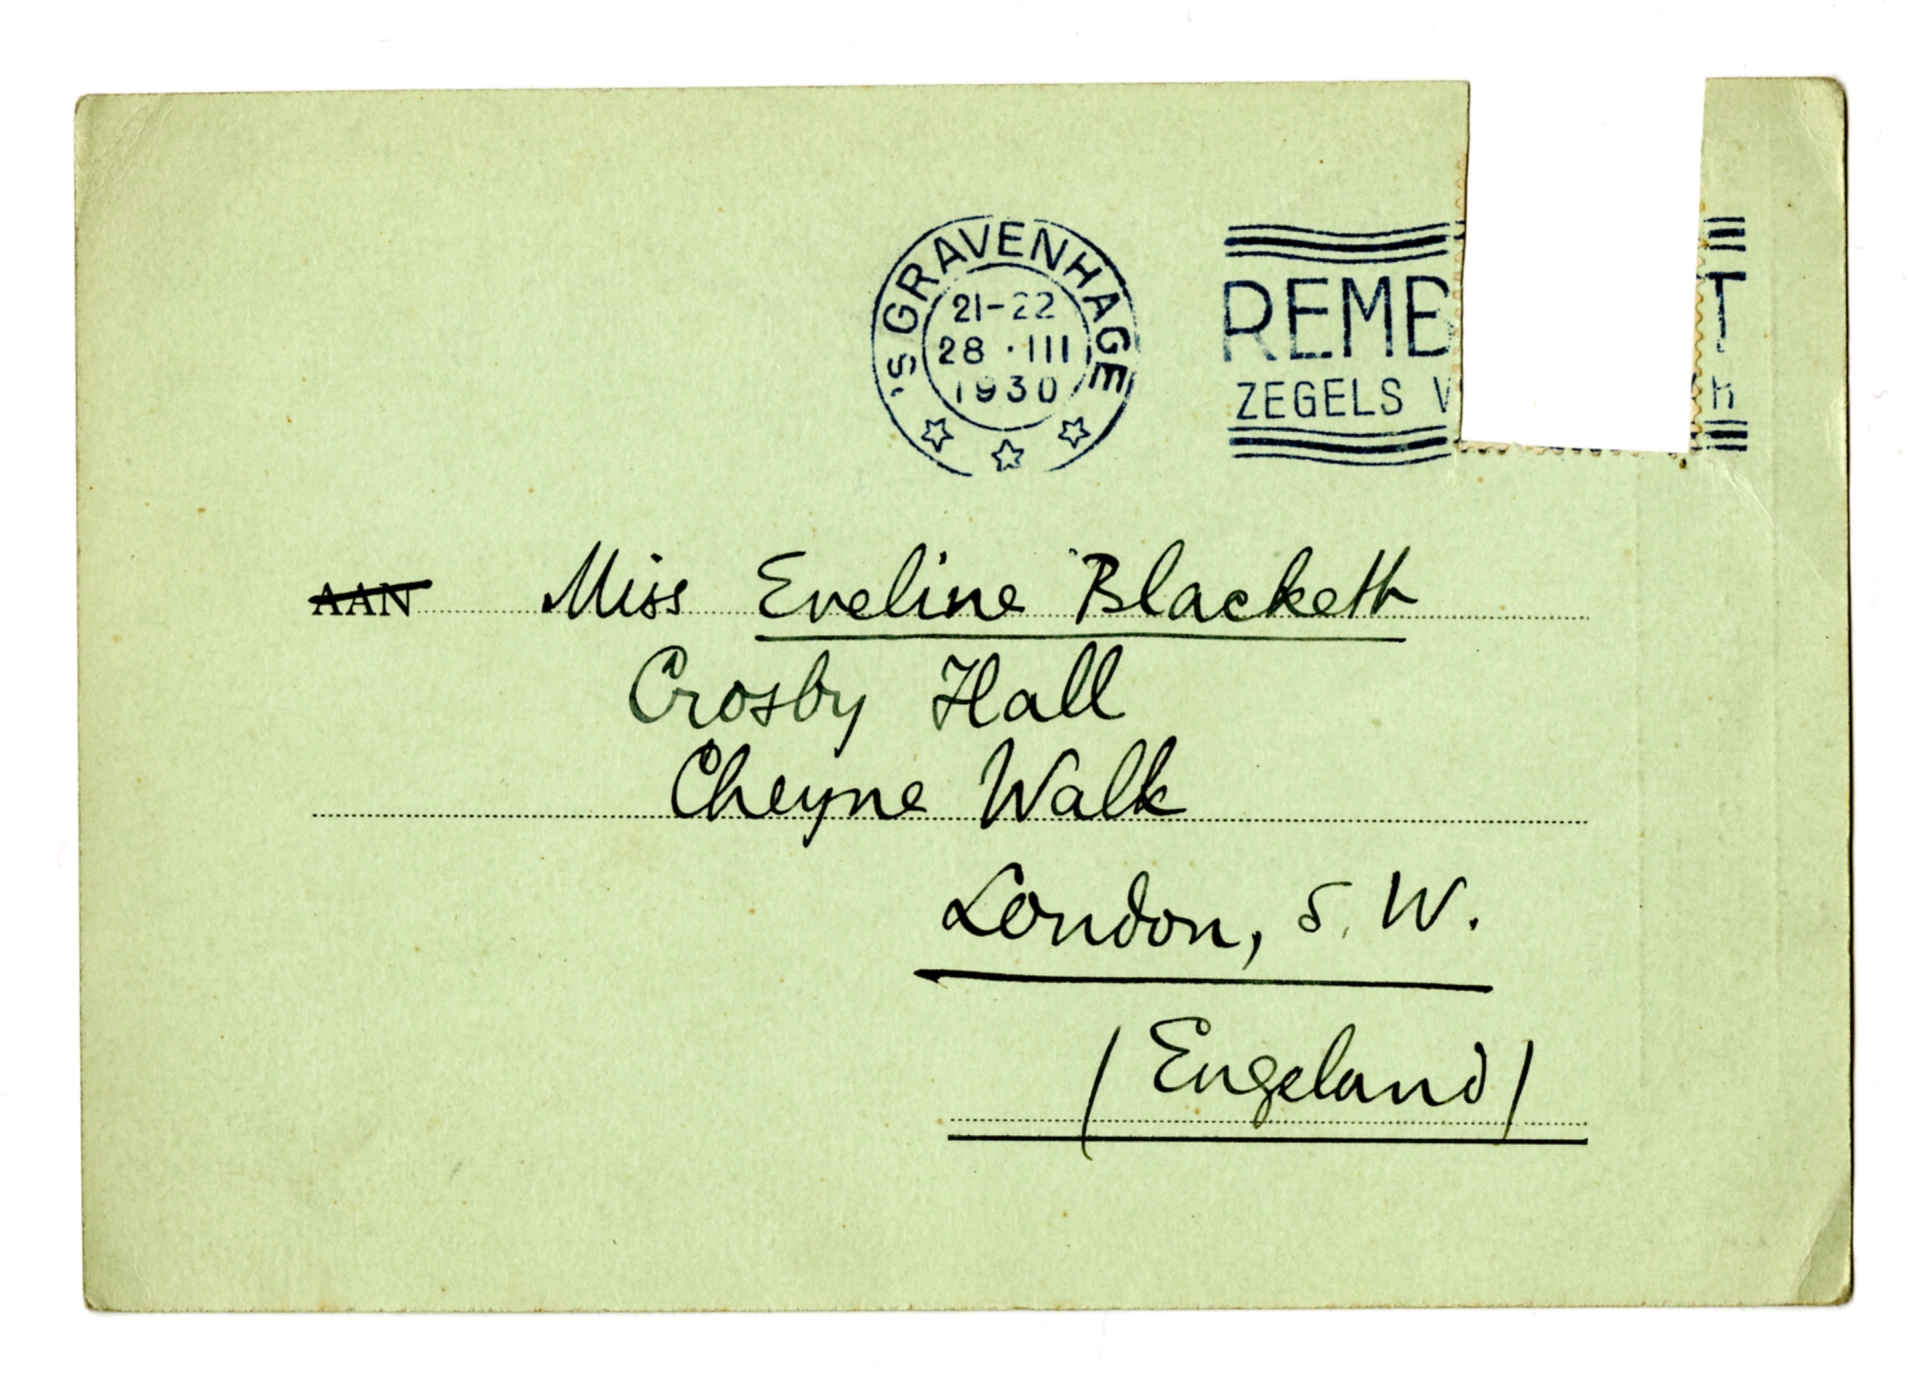 'S GRAVENHAGE
21-22
28 · III
1930
REMB T
ZEGELS
AAN Miss Eveline Blacketh
Crosby Hall
Cheyne Walk
London, S.W.
(Engeland)